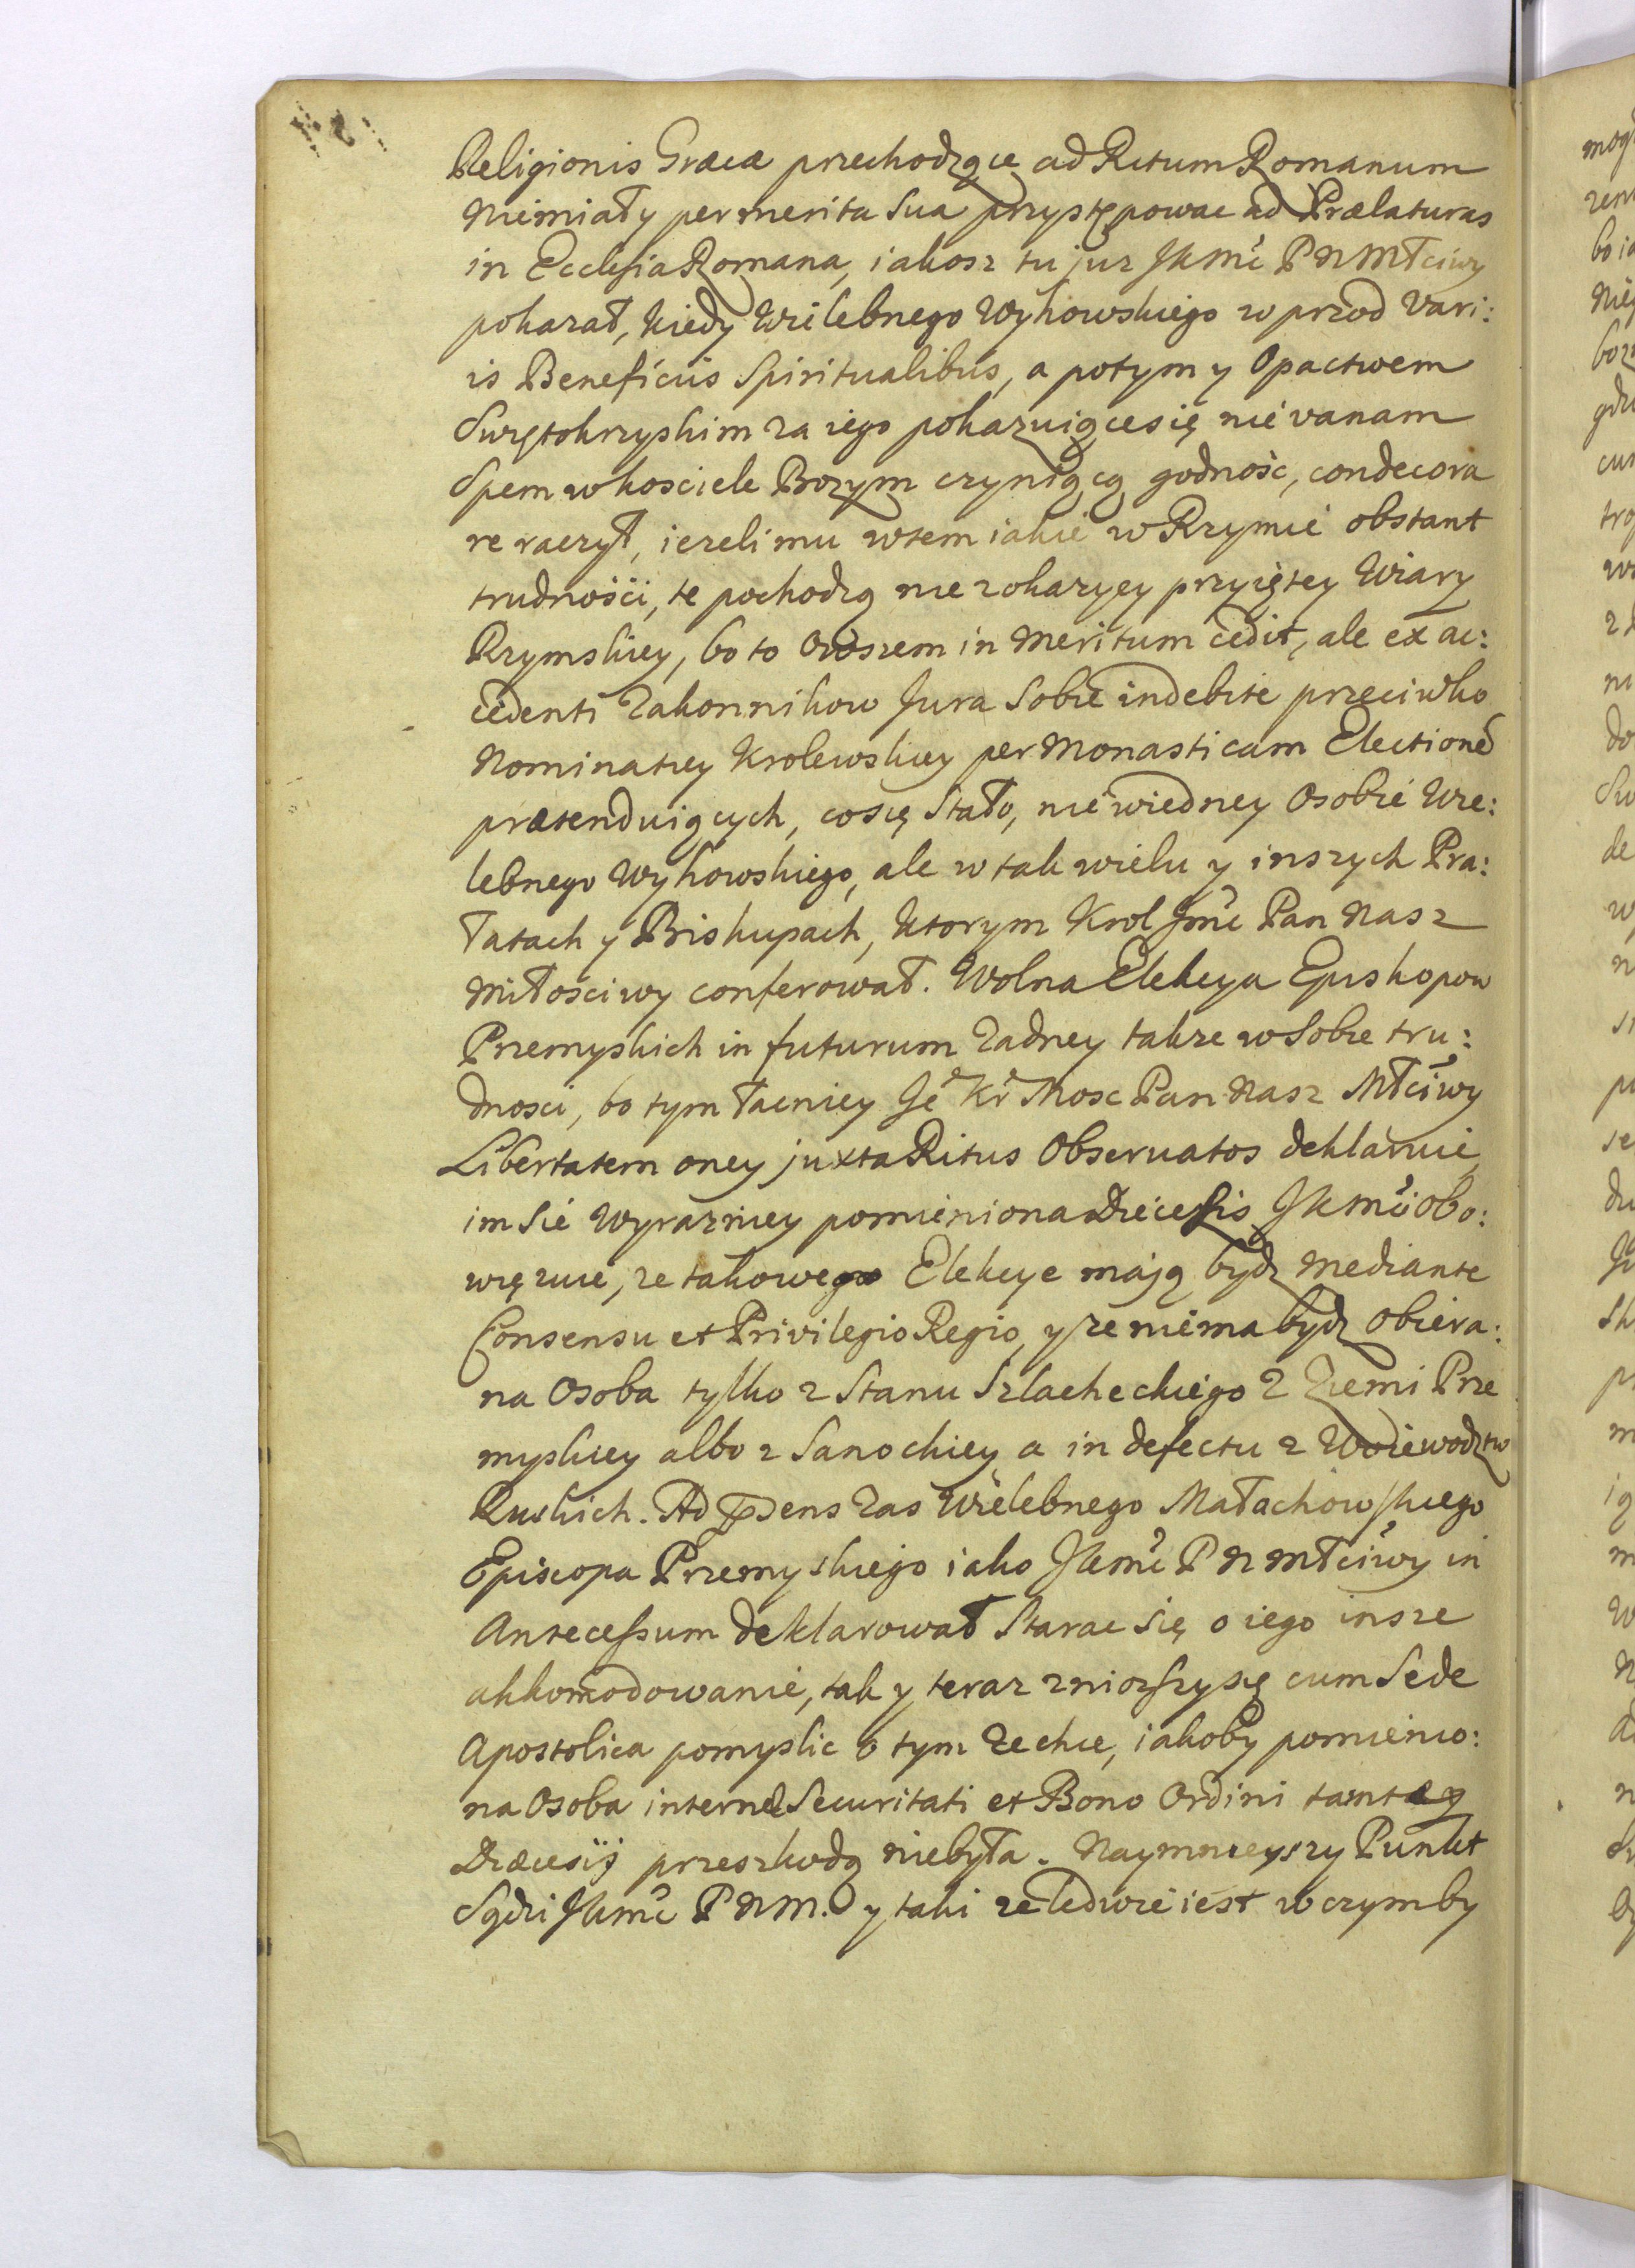 Religionis Græcæ przechodzące ad Ritum Romanum
niemiały per merita Sua przystępowac ad Prælaturas
in Ecclesia Romana, iakosz tu juz JKmć P N Młciwy
pokazał, kiedy Wielebnego Wyhowskiego w przod Vari:
is Beneficiis Spiritualibus, a potym y Opactwem
Swiętokrzyskim za iego pokazuiącesię nie vanam
Spem w kosciele Bozym czyniącą godność, condecora
re raczył, iezeli mu wtem iakie w Rzymie obstant
trudnośći, te pochodzą nie z okazyey przyiętey Wiary
Rzymskiey, bo to owszem in meritum cedit, ale ex ac:
cedenti Zakonnikow Jura Sobie indebite przeciwko
Nominatiey Krolewskiey per Monasticam Electione
prætenduiących, cosię Stało, nie wiedney Osobie Wie:
lebnego Wyhowskiego, ale w tak wielu y inszych Præ:
łatach y Biskupach, ktorym Krol Jmć Pan Nasz
Miłosciwy conferował. Wolna Elekcya Episkopow
Przemyskich in futurum Zadney takze w Sobie tru:
dnosci, bo tym łacniey Je Kr Mosc Pan Nasz Młciwy
Libertatem oney juxta Ritus Observatos deklaruie,
im Sie wyrazniey pomieniona Diecesis JKmći obo:
więzuie, ze takowego Elekcye mają bydz mediante
Consensu et Privilegio Regio, y ze niema bydz obiera:
na Osoba tylko z Stanu Szlacheckiego z Ziemi Prze
myskiey albo z Sanockiey a in defectu z Woiewodztw
Ruskich. Ad præsens Zas Wielebnego Małachowskiego
Episcopa Przemyskiego iako JKmć P N Młciwy in
Antecessum deklarował Starac Się o iego insze
akkomodowanie, tak y teraz zniozszysię cum Sede
Apostolica pomyslic o tym Zechce, iakoby pomienio:
na Osoba internæ Securitati et Bono Ordini tamtey
Diæcesij przeszkodą niebyła. Naymnieyszy Punkt
Sądzi JKmć P N M. y taki ze ledwie iest w czymby